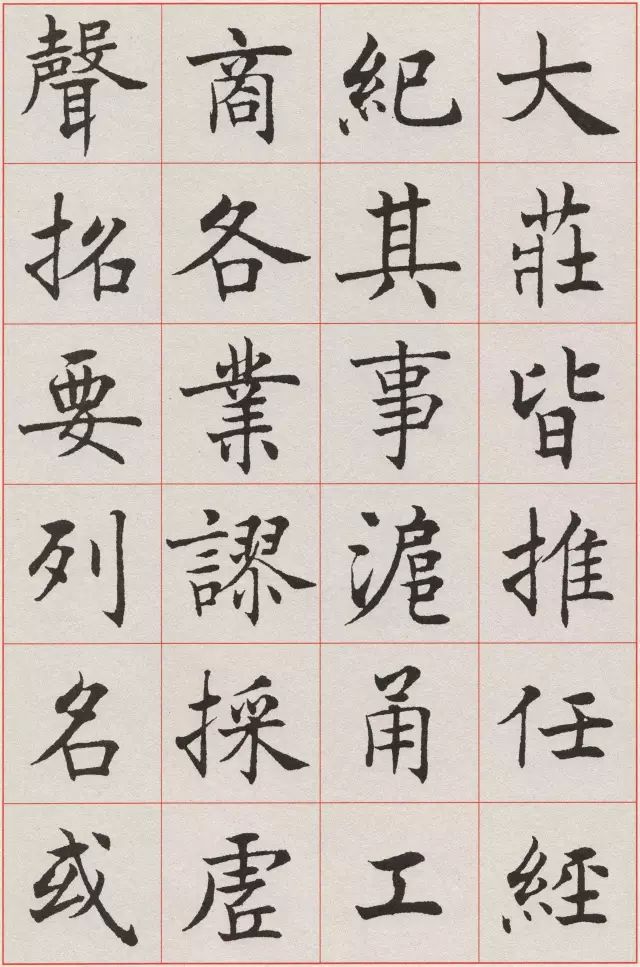 大莊皆推任經
紀其事滬甬工
商各業謬採虗
聲招要列名或